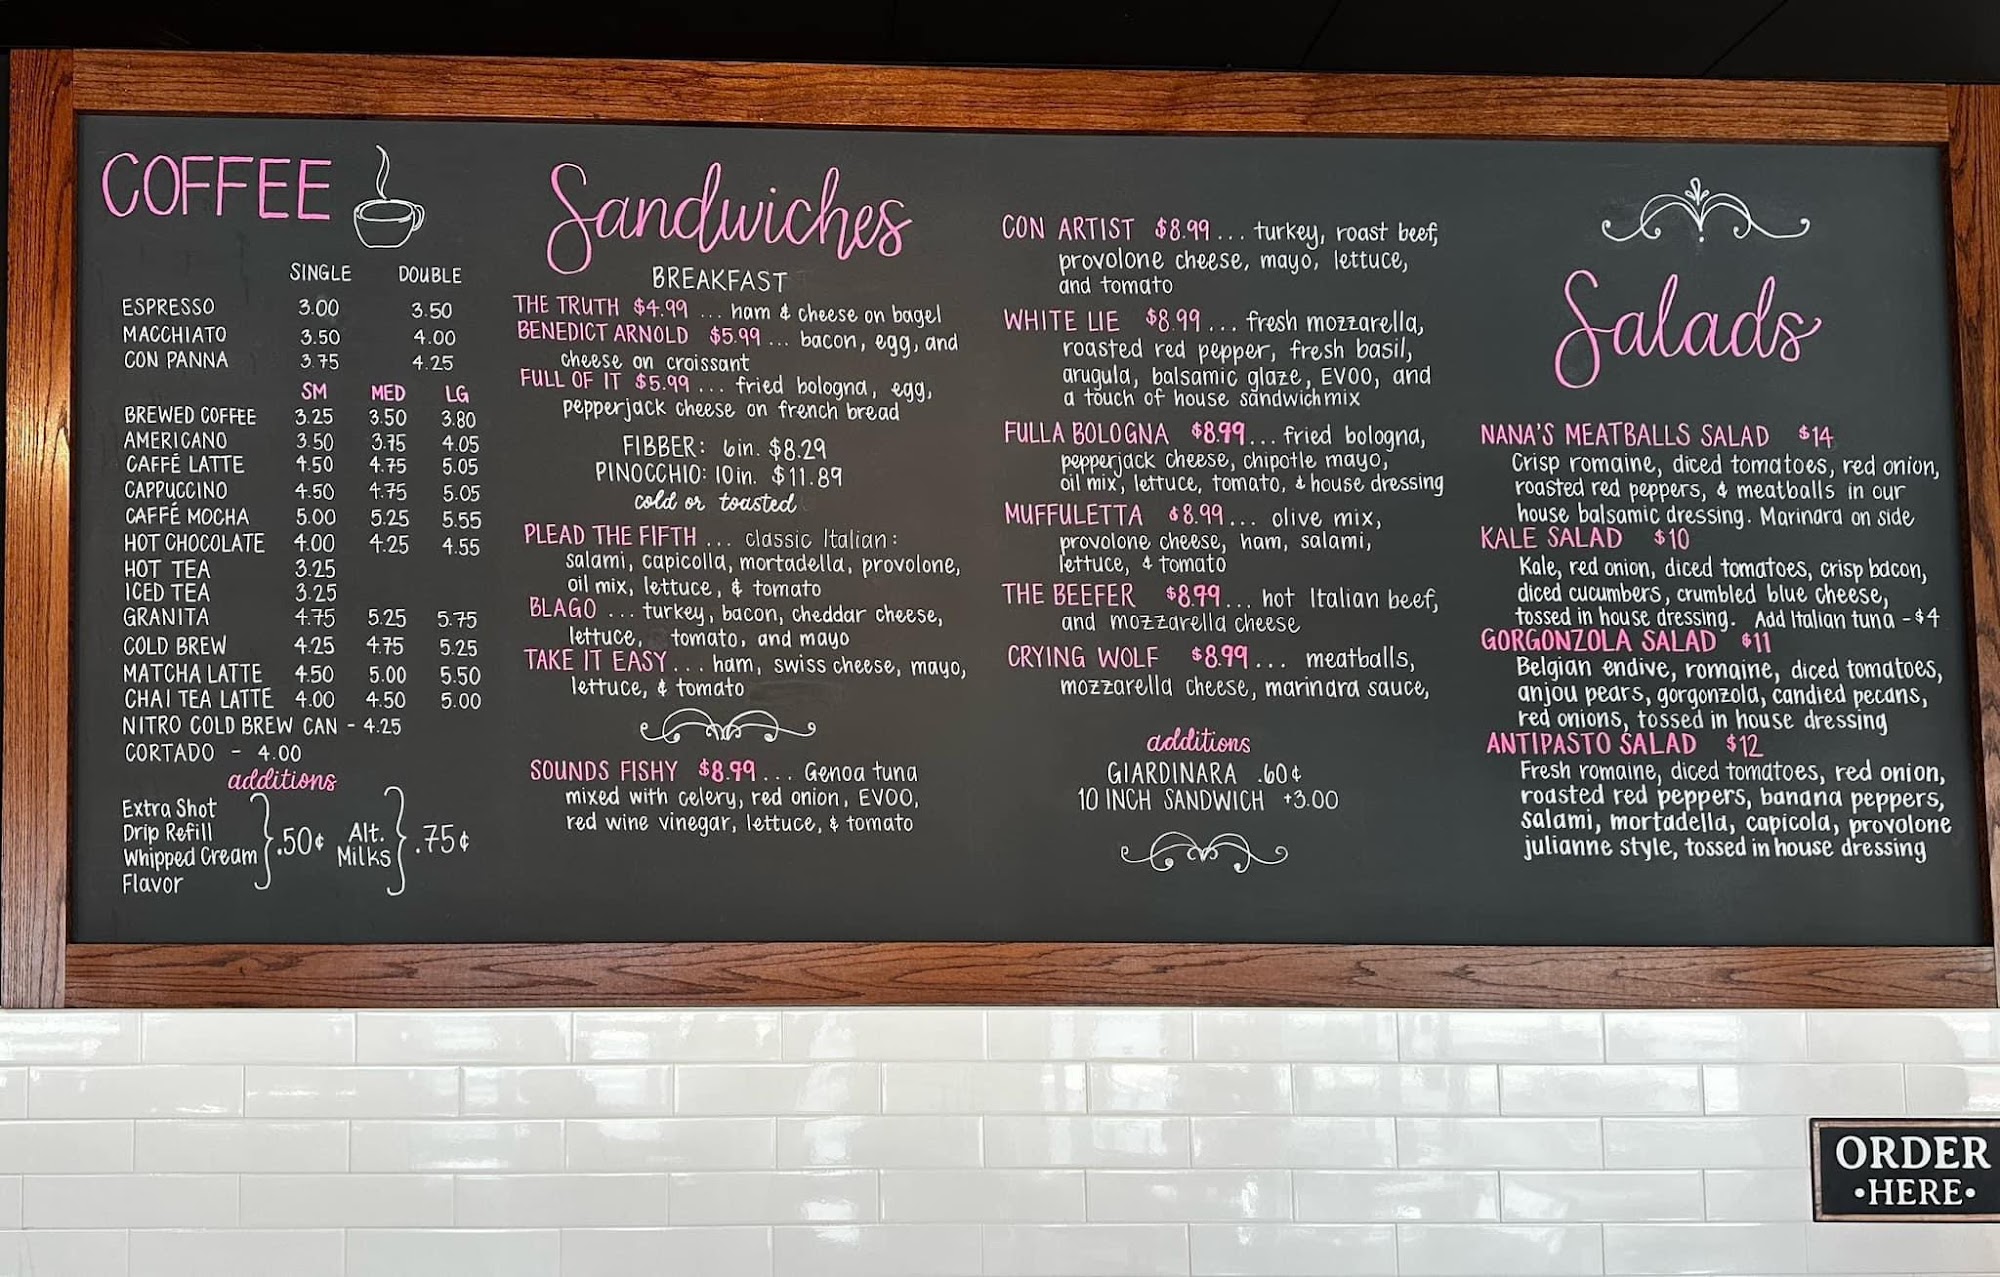 COFFEE
SINGLE DOUBLE
ESPRESSO 3.00 3.50
MACCHIATO 3.50 4.00
CON PANNA 3.75 4.25
SM MED LG
BREWED COFFEE 3.25 3.50 3.80
AMERICANO 3.50 3.75 4.05
CAFFÉ LATTE 4.50 4.75 5.05
CAPPUCCINO 4.50 4.75 5.05
CAFFÉ MOCHA 5.00 5.25 5.55
HOT CHOCOLATE 4.00 4.25 4.55
HOT TEA 3.25
ICED TEA 3.25
GRANITA 4.75 5.25 5.75
COLD BREW 4.25 4.75 5.25
MATCHA LATTE 4.50 5.00 5.50
CHAI TEA LATTE 4.00 4.50 5.00
NITRO COLD BREW CAN - 4.25
CORTADO - 4.00
additions
Extra Shot
Drip Refill
Whipped Cream
Flavor
.50¢
Alt.
Milks
.75¢
Sandwiches
BREAKFAST
THE TRUTH $4.99 ... ham & cheese on bagel
BENEDICT ARNOLD $5.99 ... bacon, egg, and
cheese on croissant
FULL OF IT $5.99 ... fried bologna, egg,
pepperjack cheese on french bread
FIBBER: 6in. $8.29
PINOCCHIO: 10in. $11.89
cold or toasted
PLEAD THE FIFTH ... classic Italian:
salami, capicolla, mortadella, provolone,
oil mix, lettuce, & tomato
BLAGO ... turkey, bacon, cheddar cheese,
lettuce, tomato, and mayo
TAKE IT EASY ... ham, swiss cheese, mayo,
lettuce, & tomato
SOUNDS FISHY $8.99 ... Genoa tuna
mixed with celery, red onion, EVOO,
red wine vinegar, lettuce, & tomato
CON ARTIST $8.99 ... turkey, roast beef,
provolone cheese, mayo, lettuce,
and tomato
WHITE LIE $8.99 ... fresh mozzarella,
roasted red pepper, fresh basil,
arugula, balsamic glaze, EVOO, and
a touch of house sandwich mix
FULLA BOLOGNA $8.99 ... fried bologna,
pepperjack cheese, chipotle mayo,
oil mix, lettuce, tomato, & house dressing
MUFFULETTA $8.99 ... olive mix,
provolone cheese, ham, salami,
lettuce, & tomato
THE BEEFER $8.99 ... hot Italian beef,
and mozzarella cheese
CRYING WOLF $8.99 ... meatballs,
mozzarella cheese, marinara sauce,
additions
GIARDINARA .60¢
10 INCH SANDWICH +3.00
Salads
NANA'S MEATBALLS SALAD $14
Crisp romaine, diced tomatoes, red onion,
roasted red peppers, & meatballs in our
house balsamic dressing. Marinara on side
KALE SALAD $10
Kale, red onion, diced tomatoes, crisp bacon,
diced cucumbers, crumbled blue cheese,
tossed in house dressing. Add Italian tuna - $4
GORGONZOLA SALAD $11
Belgian endive, romaine, diced tomatoes,
anjou pears, gorgonzola, candied pecans,
red onions, tossed in house dressing
ANTIPASTO SALAD $12
Fresh romaine, diced tomatoes, red onion,
roasted red peppers, banana peppers,
salami, mortadella, capicola, provolone
julianne style, tossed in house dressing
ORDER
•HERE•